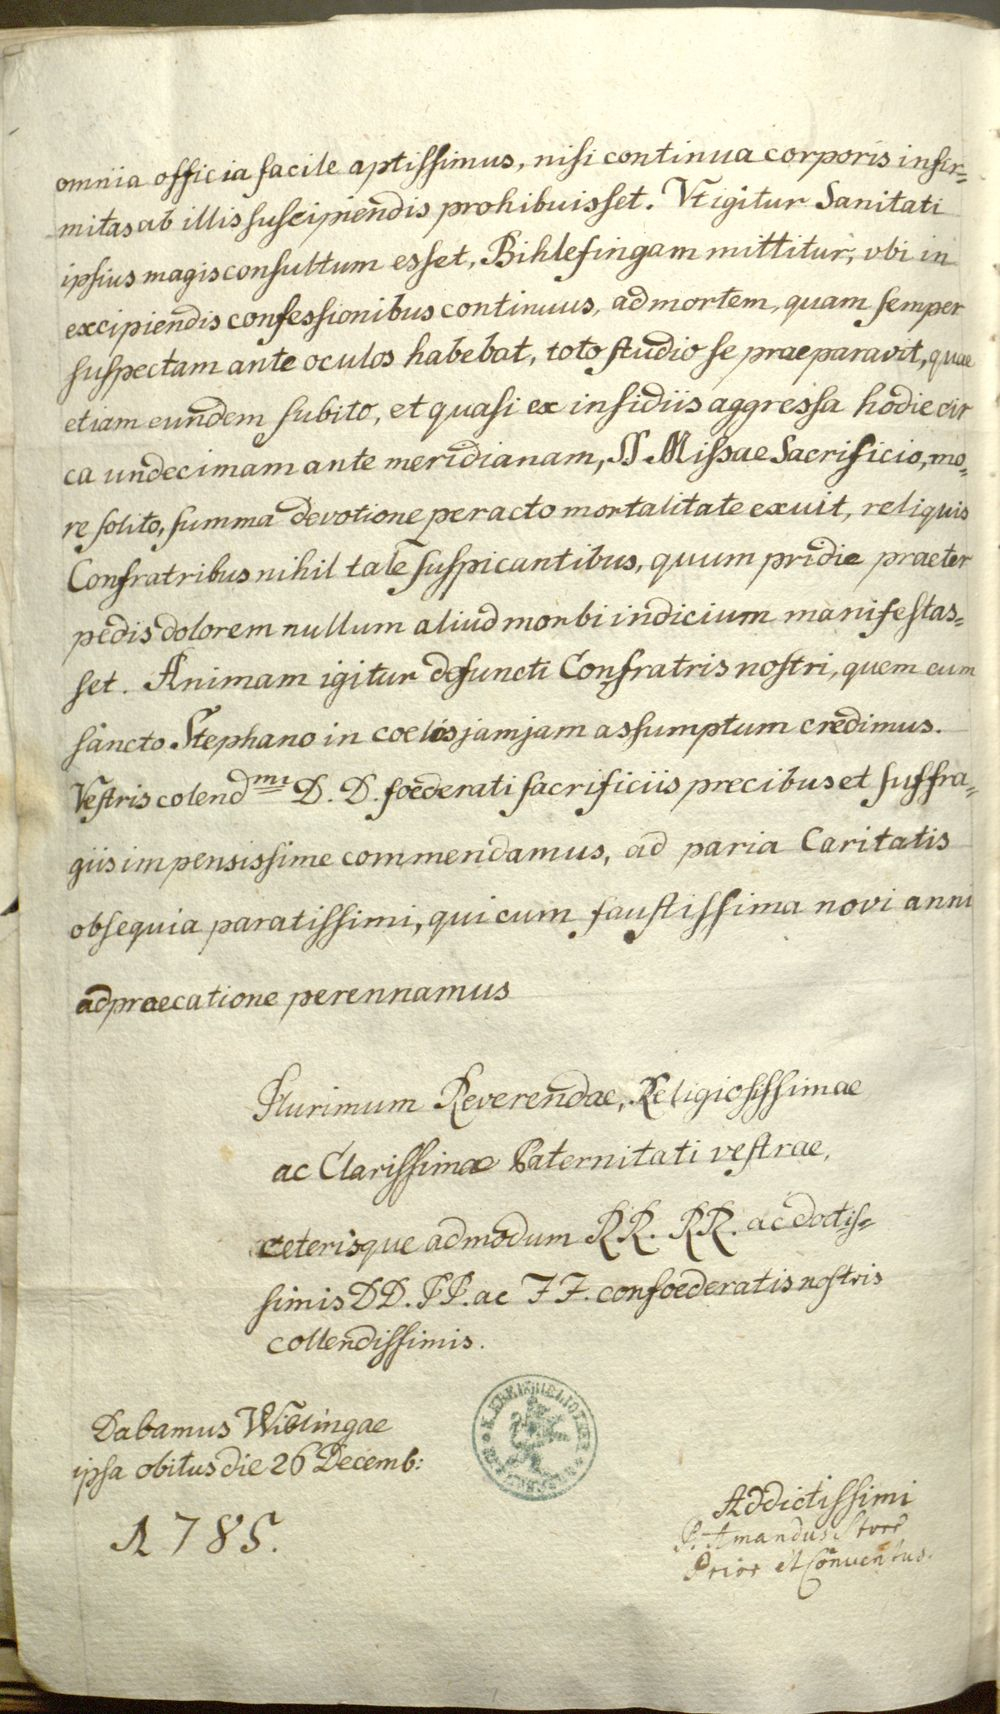 omnia officia facile aptissimus, nisi continua corporis infir=
mitas ab illis suscipiendis prohibuisset. Vt igitur Sanitati
ipsius magis consultum esset, Bihlefingam mittitur, vbi in
excipiendis confessionibus continuus, ad mortem, quam semper
suspectam ante oculos habebat, toto studio se praeparavit, quae
etiam eundem subito, et quasi ex insidiis aggressa hodie cir
ca undecimam ante meridianam, SS Missae Sacrificio, mo=
re solito, summa devotione peracto mortalitate exuit, reliquis
Confratribus nihil tale suspicantibus, quum pridie praeter
pedis dolorem nullum aliud morbi indicium manifestas=
set. Animam igitur defuncti Confratris nostri, quem cum
sancto Stephano in coelis jamjam assumptum credimus.
Vestris colendmi D. D. foederati sacrificiis precibus et suffra=
giis impensissime commendamus, ad paria Caritatis
obsequia paratissimi, qui cum faustissima novi anni
adpraecatione perennamus
Plurimum Reverendae, Religiosissimae
ac Clarissimae Paternitati vestrae,
ceterisque admodum RR. RR. ac doctis=
simis DD. PP. ac FF. confoederatis nostris
collendissimis.
Dabamus Wiblingae
ipsa obitus die 26 Decemb:
1785.
Addictissimi
P. Amandus Storr
Prior et Conventus.